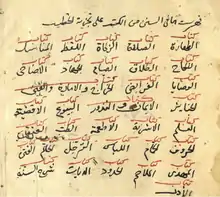 فهرست ما في السنن من الكتب على تجزئة الخطيب
كتاب الطهارة كتاب الصلاة كتاب الزكاة كتاب اللقطة كتاب المناسك
كتاب النكاح كتاب الطلاق كتاب الصيام كتاب الجهاد كتاب الاضاحي
كتاب الوصايا كتاب الفرائض كتاب الخراج والامارة والفيء
كتاب الجنائز كتاب الايمان والنذور كتاب البيوع كتاب الاقضية
كتاب العلم كتاب الاشربة كتاب الاطعمة كتاب الطب كتاب العتق
كتاب الحروف كتاب الحمام كتاب اللباس كتاب الترجل كتاب الخاتم كتاب الفتن
كتاب المهدي كتاب الملاحم كتاب الحدود كتاب الديات كتاب شرح السنة
كتاب الادب